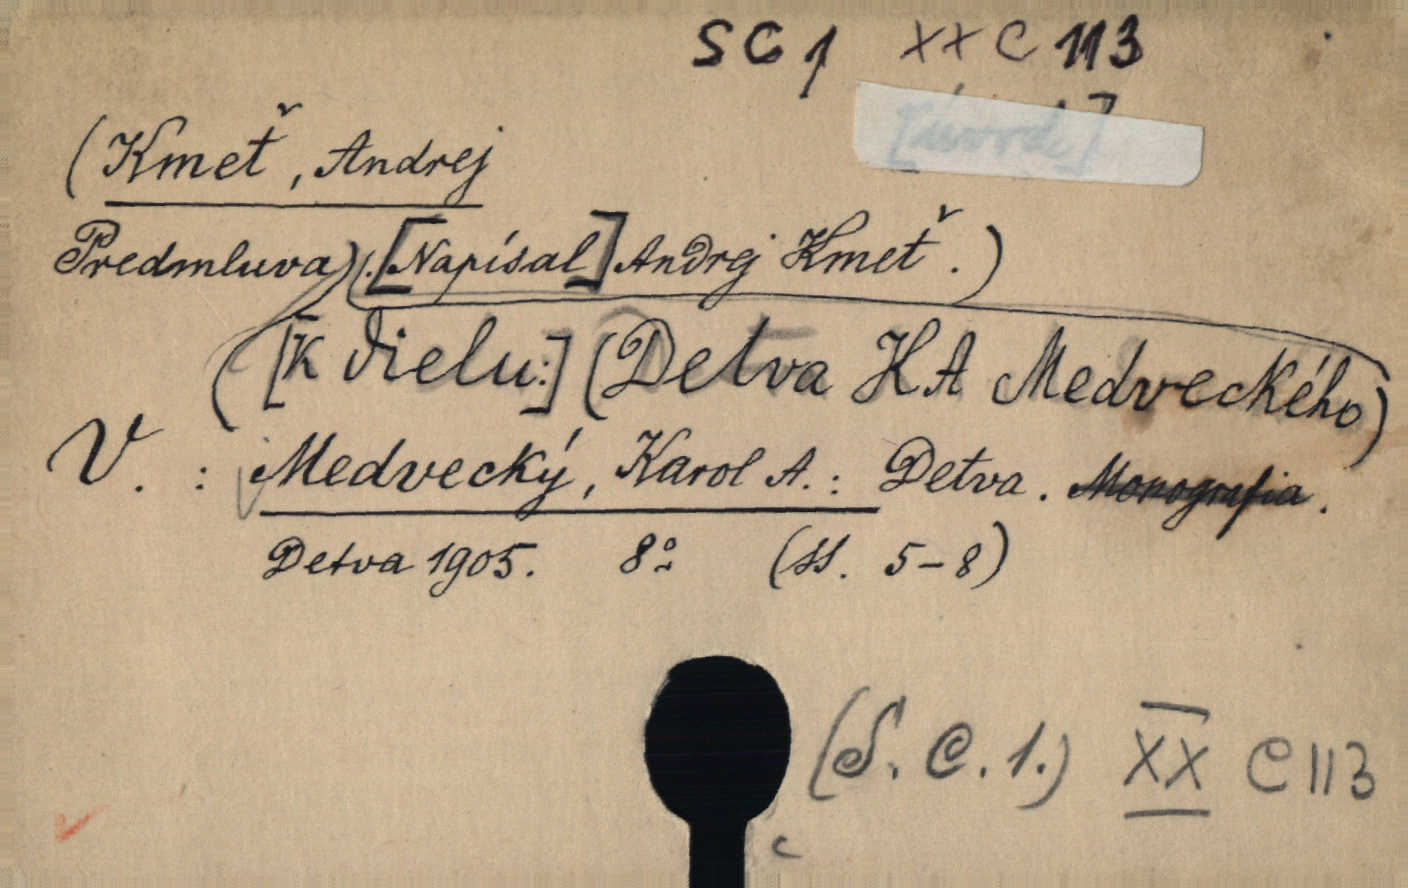 SC1 XX C 113
[úvod]
(Kmeť, Andrej
Predmluva). [Napísal] Andrej Kmeť.)
([K dielu:] (Detva KA Medveckého)
V. : Medvecký, Karol A.: Detva. Monografia.
Detva 1905. 8° (ss. 5-8)
(S. C. 1.) XX C 113
c